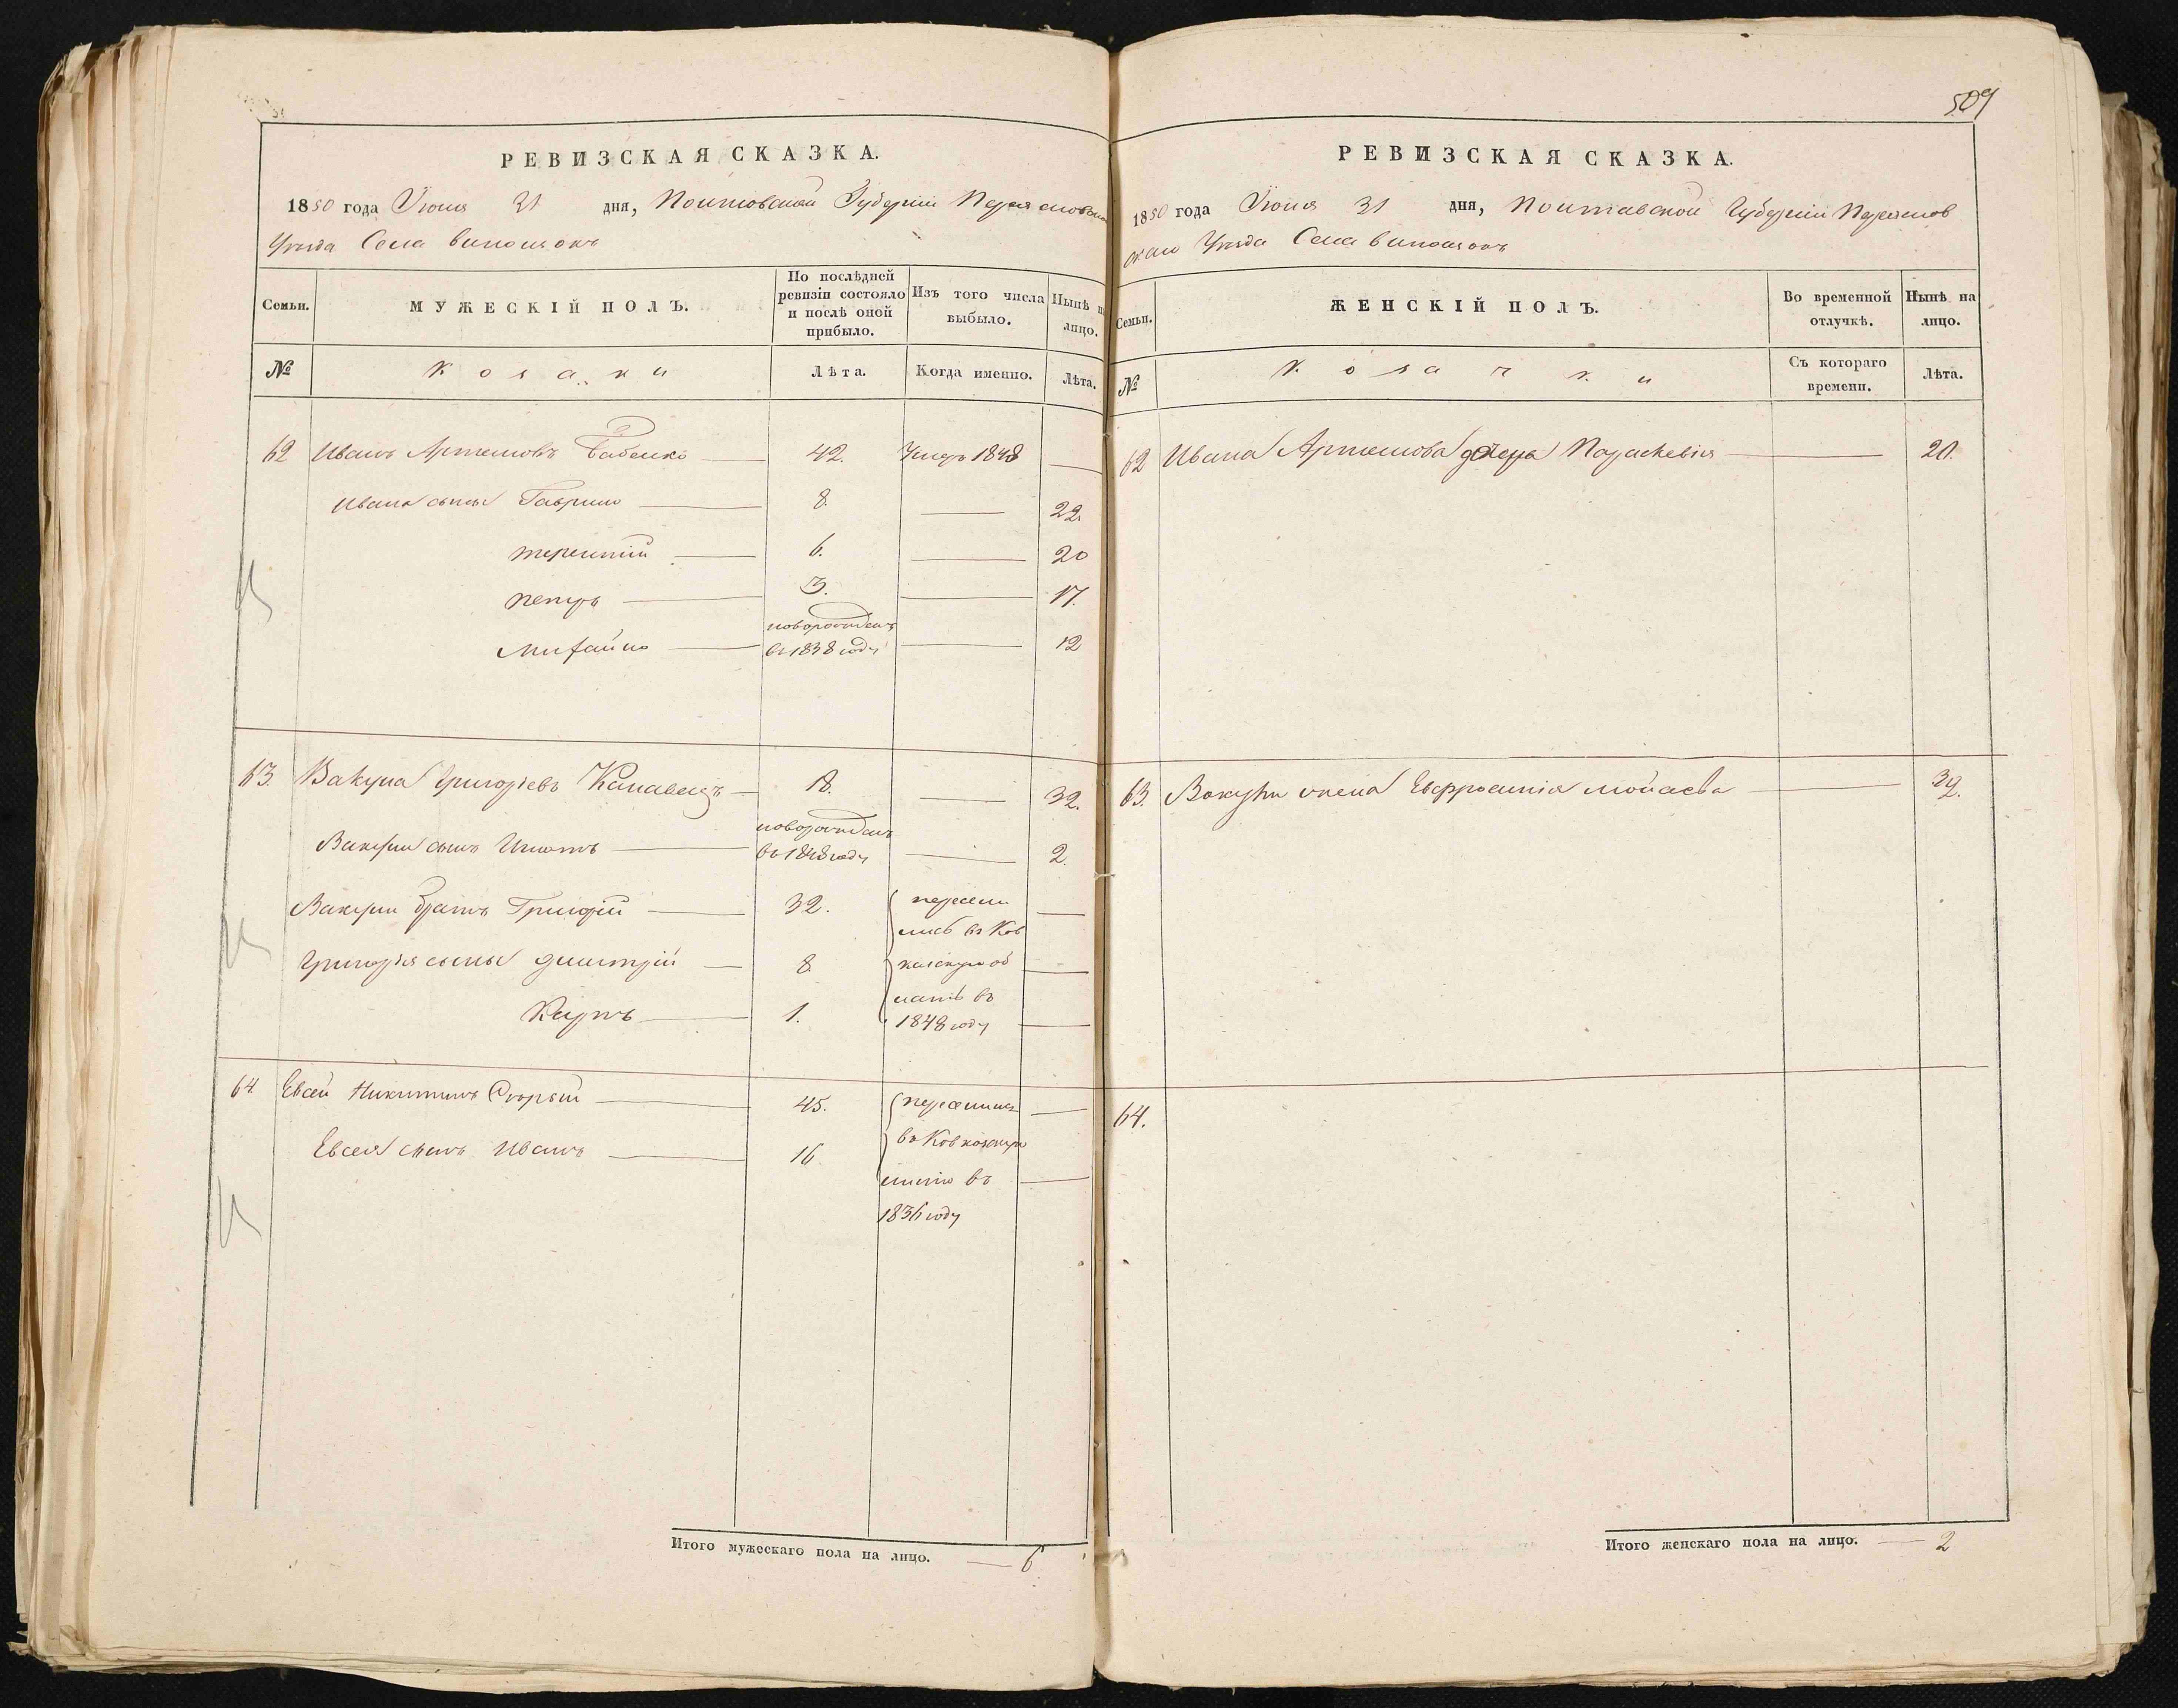 РЕВИЗСКАЯ СКАЗКА.
1850 года Июня 31 дня, Полтавской Губерніи Переяславска
Уезда Села
Семьи. МУЖЕСКІЙ ПОЛЪ. По послѣдней ревизіи состояло и послѣ оной прибыло. Изъ того числа выбыло. Нынѣ на лицо.
№ Козаки Лѣта. Когда именно. Лѣта.
62 Иванъ Артемовъ Бабенко 42. Умеръ 1848
Ивана сыны Гаврило 8. 22.
Терентій 6. 20
Петръ 3. 17.
новорожденъ
Михайло въ 1838 году 12
63. Вакула Григорьевъ Калавецъ 18. 32.
новорожденъ
Вакулы сынъ Игнатъ въ 1848 году 2.
Вакулы братъ Григорій 32. пересели
лись въ Кав
Григорія сыны Дмитрій 8. казскую об
ласть въ
Карпъ 1. 1848 году
64. Евсей Никитинъ Скорый 45. переселились
въ Кавказскую
Евсея сынъ Иванъ 16.
въ
1836 году
Итого мужескаго пола на лицо. 6
509
РЕВИЗСКАЯ СКАЗКА.
1850 года Июня 31 дня, Полтавской Губерніи Переяслав
скаго Уезда Села
Семьи. ЖЕНСКІЙ ПОЛЪ. Во временной отлучкѣ. Нынѣ на лицо.
№ Козачки Съ котораго времени. Лѣта.
62 Ивана Артемова дочерь Параскевія 20.
63. Вакулы жена Евфросинія Мойсева 32.
64.
Итого женскаго пола на лицо. 2